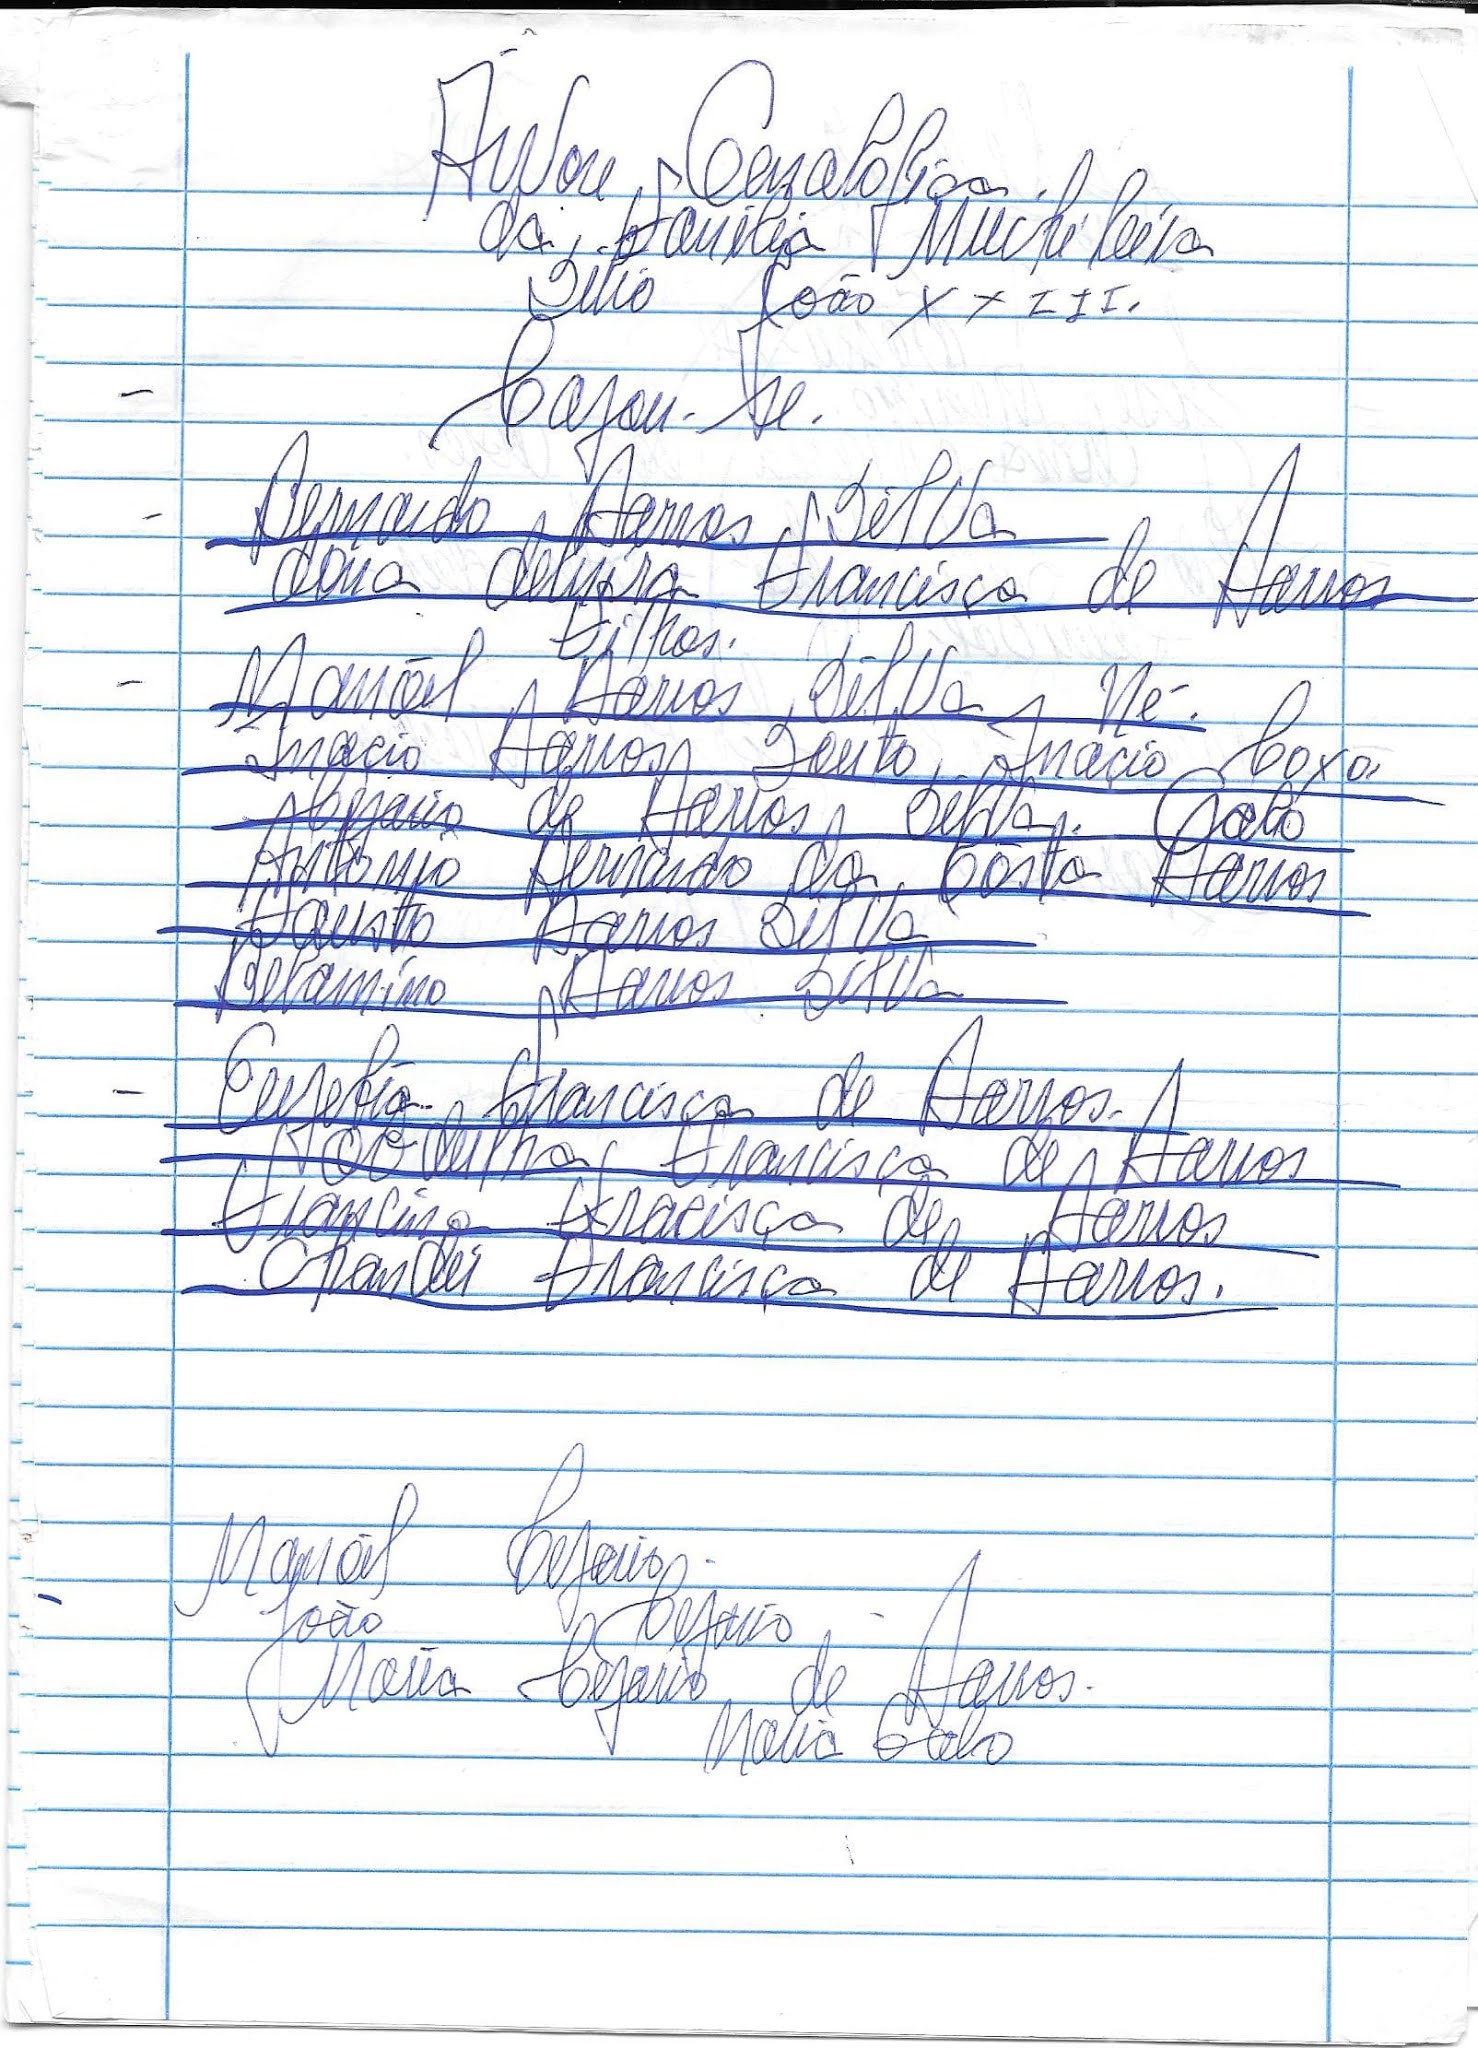 Árvore Genealógica
da Família Muchileira
Sítio João XXIII.
Cazou-Se.
Bernardo Barros Silva
dona delmira Francisca de Barros
Filhos.
Manoel Barros Silva Né.
Inacio Barros Souto Inacio Coxo.
Cezario de Barros Silva. Galo
Antonio Bernardo da Costa Barros
Fausto Barros Silva
Belamino Barros Silva
Euzebia Francisca de Barros.
Francisca de Barros
Francisca Fracisca de Barros
Francisca de Barros.
Manoel Cezario.
João Cezario
Maria Cezario de Barros.
Maria Galo